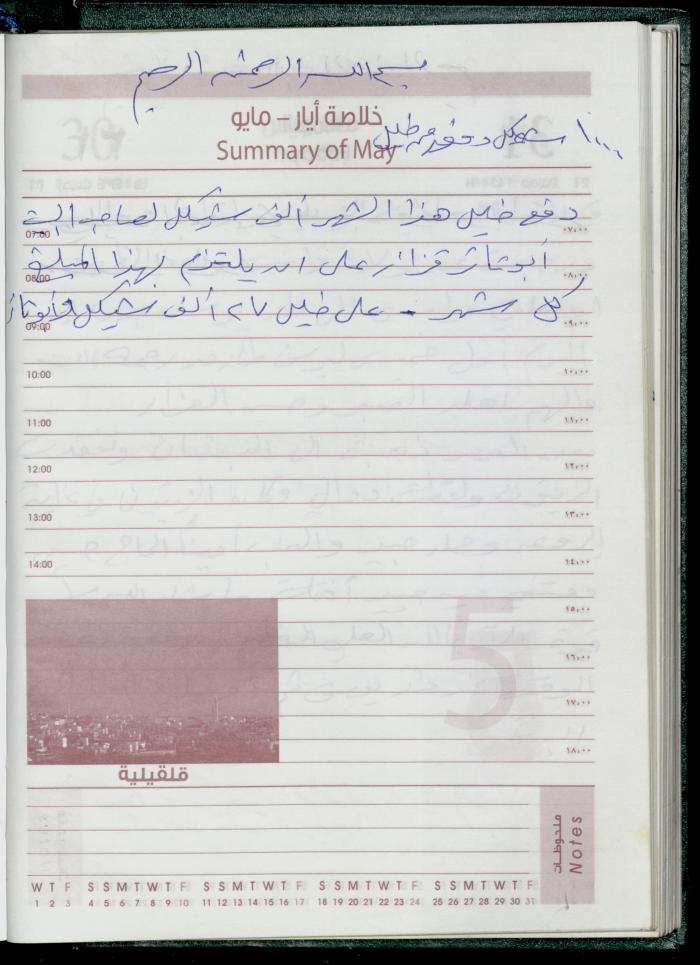 بسم الله الرحمن الرحيم
خلاصة أيار – مايو
Summary of May
١٠٠٠ شيكل دفعة من خليل
دفع خليل هذا الشهر ألف شيكل لصاحب البيت
07:00 ٠٧:٠٠
أبو تائر قزاز على ان يلتزم بهذا المبلغ
08:00 ٠٨:٠٠
كل شهر - على خليل ٢٧ ألف شيكل
09:00 ٠٩:٠٠
10:00 ١٠:٠٠
11:00 ١١:٠٠
12:00 ١٢:٠٠
13:00 ١٣:٠٠
14:00 ١٤:٠٠
١٥:٠٠
5
١٦:٠٠
١٧:٠٠
١٨:٠٠
قلقيلية
ملحوظات
Notes
W T F S S M T W T F S S M T W T F S S M T W T F S S M T W T F
1 2 3 4 5 6 7 8 9 10 11 12 13 14 15 16 17 18 19 20 21 22 23 24 25 26 27 28 29 30 31